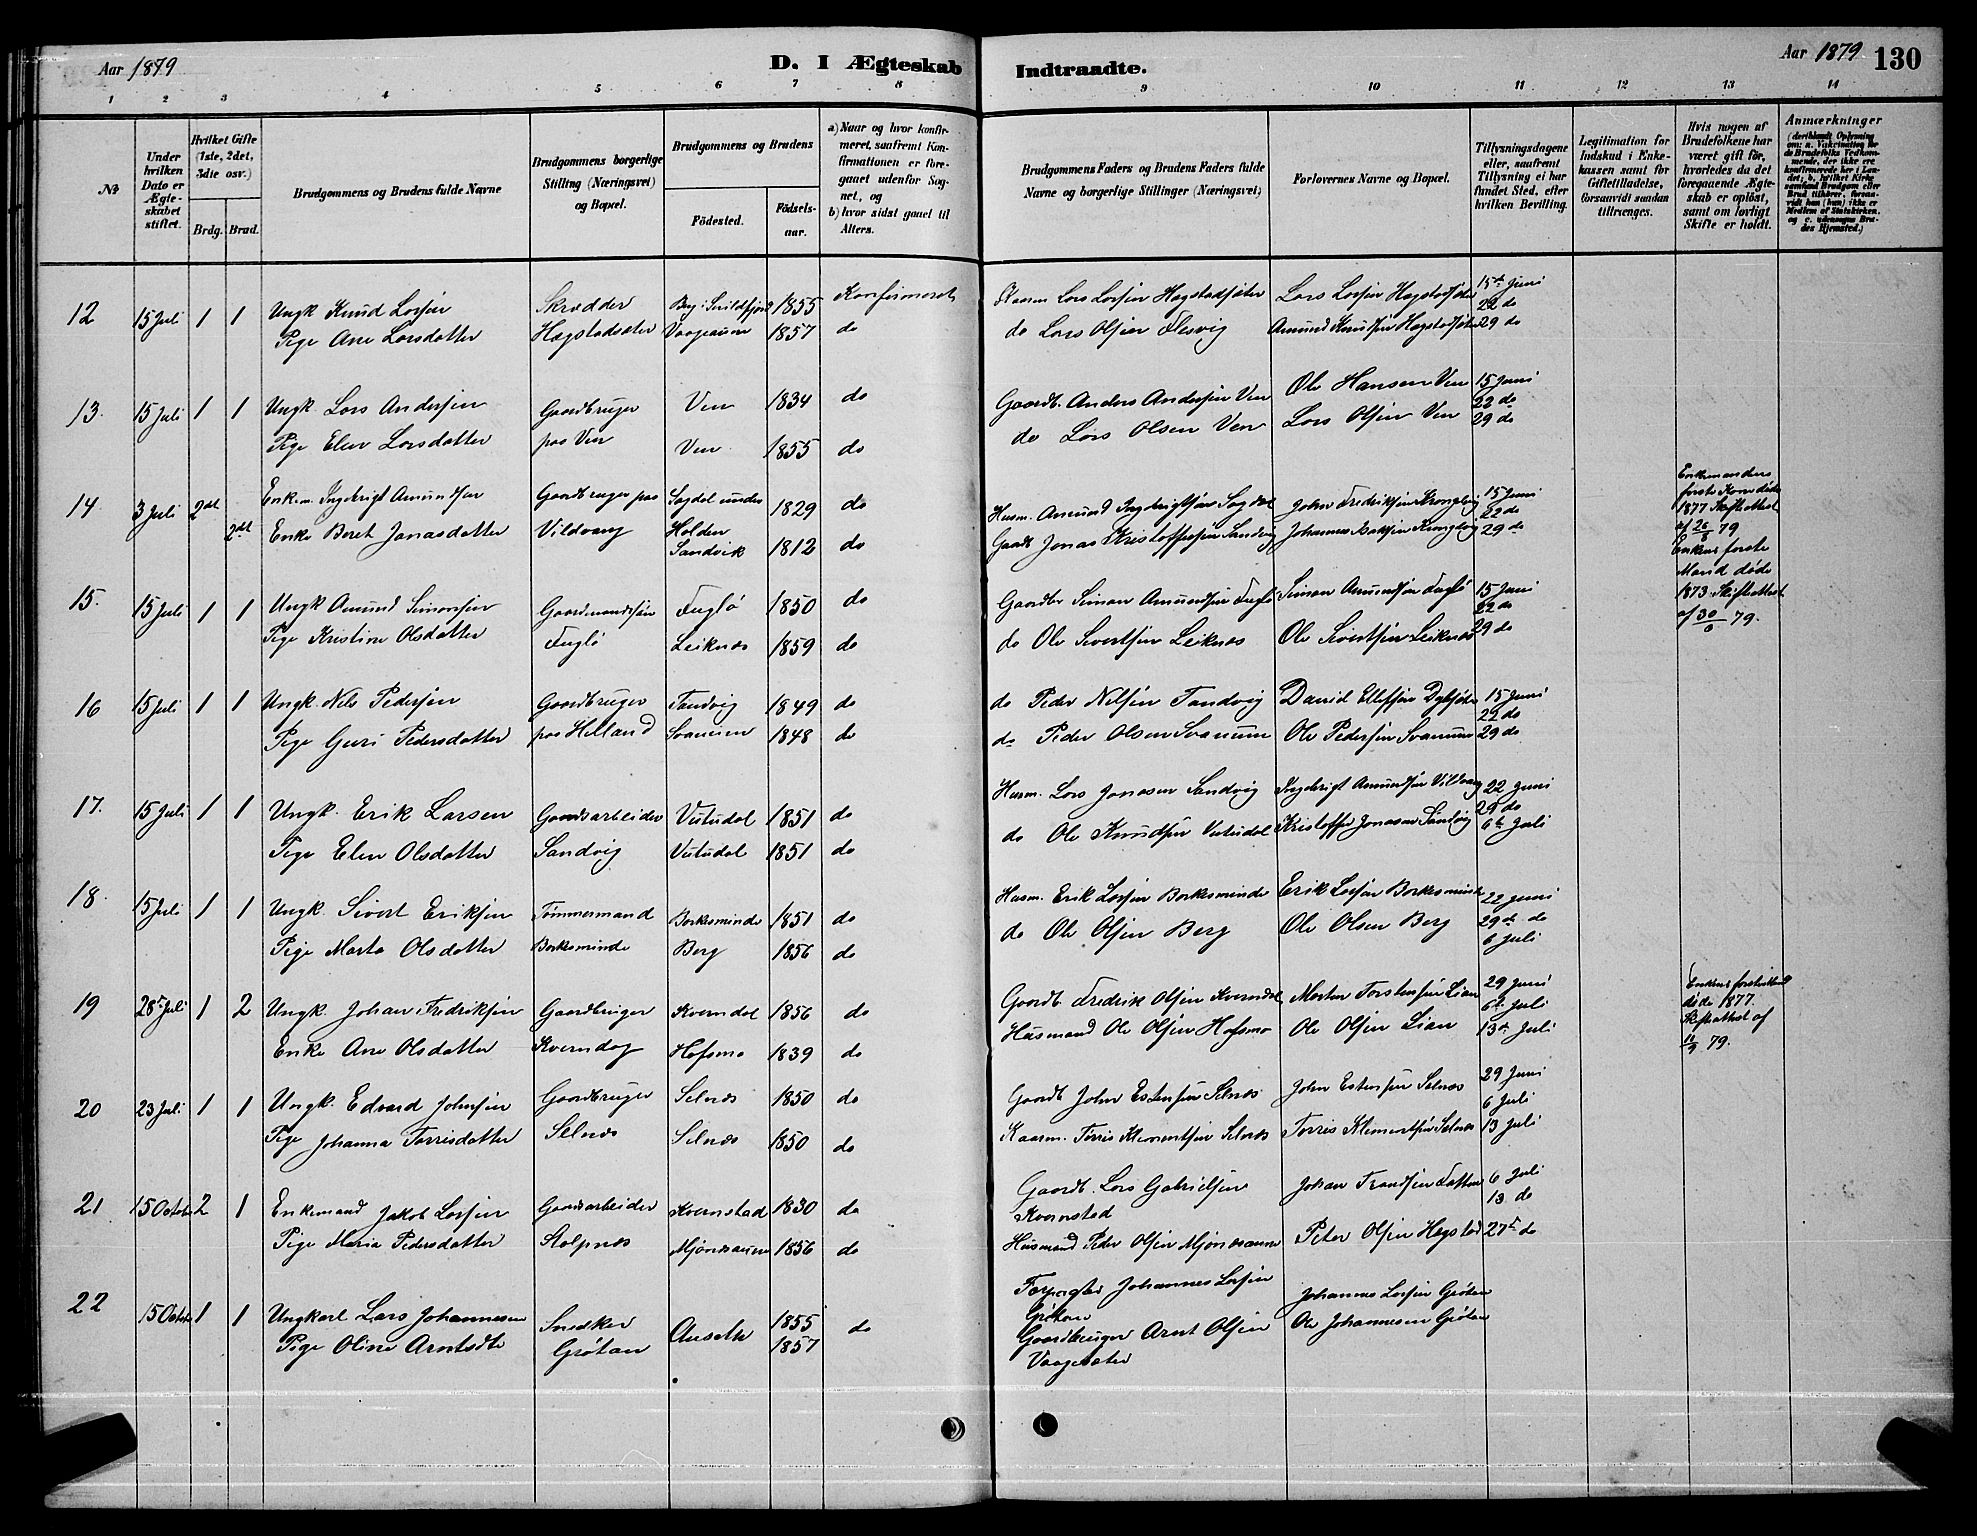 Aar 1879
D. I Ægteskab Indtraadte.
Aar 1879 130
1 2 3 4 5 6 7 8 9 10 11 12 13 14
№
Under hvilken Dato er Ægteskabet stiftet.
Hvilket Gifte (1ste, 2det, 3die osv.)
Brdg. Brud.
Brudgommens og Brudens fulde Navne
Brudgommens borgerlige Stilling (Næringsvei) og Bopæl.
Brudgommens og Brudens
Födested. Födselsaar.
a) Naar og hvor konfirmeret, saafremt Konfirmationen er foregaaet udenfor Sognet, og
b) hvor sidst gaaet til Alters.
Brudgommens Faders og Brudens Faders fulde Navne og borgerlige Stillinger (Næringsvei)
Forlovernes Navne og Bopæl.
Tillysningsdagene eller, saafremt Tillysning ei har fundet Sted, efter hvilken Bevilling.
Legitimation for Indskud i Enkekassen samt for Giftetilladelse, forsaavidt saadan tiltrænges.
Hvis nogen af Brudefolkene har været gift för, hvorledes da det foregaaende Ægteskab er oplöst, samt om lovligt Skifte er holdt.
Anmærkninger
12 15 Juli 1 1 Ungk Knud Larsen Skrædder 1855 Konfirmeret Lars Larsen Hagstadsæter Lars Larsen Hagstadsæter 15de Juni
22 do
Pige Ane Larsdatter Hagstadsæter Vaagaunn 1857 do do Lars Olsen Flesvig Amund Knudsen Hagstadsæter 29 do
13. 15 Juli 1 1 Ungk. Lars Andersen Gaardbruger Ven 1834 do Gaardb. Anders Andersen Ven Ole Hansen Ven 15 Juni
22 do
Pige Elen Larsdatter paa Ven Ven 1855 do do Lars Olsen Ven Lars Olsen Ven 29 do
14 3 Juli 2det Enkem. Ingebrigt Amundsen Gaardbruger paa Sagdal under 1829 do Husm. Amund Ingebrigtsen Sagdal John Fredriksen 15 Juni
22 do
2det Enke Beret Jonasdatter Vildvang Holden Sandvik 1812 do Gaardb Jonas Kristoffersen Sandvig Johannes 29 do
Enkemandens første Kone døde 1877 Skifteattest af 79
Enkens første Mand døde 1873. Skifteattest af 30/6 79.
15. 15 Juli 1 1 Ungk Amund Simonsen Gaardmandssøn Fuglø 1850 do Gaardbr Simon Amundsen Fuglø Simon Amundsen Fuglø 15 Juni
22 do
Pige Kristine Olsdatter Fuglø Leiknæs 1859 do do Ole Sivertsen Leiknæs Ole Sivertsen Leiknæs 29 do
16 15 Juli 1 1 Ungk. Nils Pedersen Gaardbruger Tandvig 1849 do do Peder Nilsen Tandvig David Ellefsen 15 Juni
22 do
Pige Guri Pedersdatter paa Helland Svanem 1848 do do Peder Olsen Svanem Ole Pedersen Svanem 29 do
17. 15 Juli 1 1 Ungk. Erik Larsen Gaardsarbeider Vutudal 1851 do Husm. Lars Jonasen Sandvig Ingebrigt Amundsen Vildvang 22 Juni
29 do
Pige Elen Olsdatter Sandvig Vutudal 1851 do do Ole Knudsen Vutudal Kristoffer Jonasen Sandvig 6te Juli
18. 15 Juli 1 1 Ungk. Sivert Eriksen Tømmermand Borkesminde 1851 do Husm. Erik Larsen Borkesminde Erik Larsen Borkesminde 22 Juni
29de do
Pige Marta Olsdatter Borkesminde Berg 1856 do do Ole Olsen Berg Ole Olsen Berg 6 Juli
19 28de Juli 1 2 Ungk. Johan Fredriksen Gaardbruger Kverndal 1856 do Gaardb. Fredrik Olsen Kverndal Morten Torstensen Lian 29 Juni
6te Juli
Enke Ane Olsdatter Kverndog Hofsmo 1839 do Husmand Ole Olsen Hofsmo Ole Olsen Lian 13de Juli
døde 1877. Skifteattest af 79.
20 23 Juli 1 1 Ungk. Edvard Johnsen Gaardbruger Selnæs 1850 do Gaardb. John Estensen Selnæs John Estensen Selnæs 29 Juni
6 Juli
Pige Johanna Torrisdatter Selnæs Selnæs 1850 do Kaarm. Torris Klementsen Selnæs Torris Klementsen Selnæs 13 Juli
21 15 Octob 2 1 Enkemand Jakob Larsen Gaardsarbeider Kvernstad 1830 do Gaardb. Lars Gabrielsen Kvernstad Johan 6 Juli
13 do
Pige Maria Pedersdatter Stolpnæs Mjønesaunn 1856 do Husmand Peder Olsen Mjønesaunn Peter Olsen Hegstad 27de do
22 15 Octob 1 1 Ungkarl Lars Johannesen Snedker Auseth 1855 do Forpagter Johannes Larsen Grøtan Johannes Larsen Grøtan
Pige Oline Arntsdtr Grøtan 1857 Gaardbruger Arnt Olsen Vaagesæter Ole Johannesen Grøtan